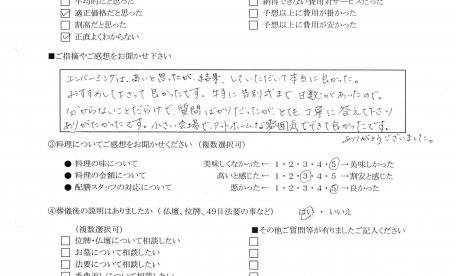 □ 平均的だと思った　□ 納得できない費用対サービスだった
☑ 適正価格だと思った　□ 予想以上に費用が掛かった
□ 割高だと思った　□ 予想以上に費用が安かった
☑ 正直よくわからない
■ご指摘やご感想をお聞かせ下さい
エンバーミングは、あいと思ったが結果、していただいて本当に良かった。
おすすめして下さって良かったです。特に告別式まで日数があったので。
分からないことだらけで、質問ばかりだったが、とても丁寧に答えて下さり
ありがたかったです。小さい会場でアットホームな雰囲気でできて良かったです。
ありがとうございました。
②料理についてご感想をお聞かせください（複数選択可）
● 料理の味について　美味しくなかった← 1・2・3・4・5 →美味しかった
● 料理の金額について　高いと感じた← 1・2・3・4・5 →割安と感じた
● 配膳スタッフの対応について　悪かった← 1・2・3・4・5 →良かった
④葬儀後の説明はありましたか（仏壇、位牌、49日法要の事など)　はい ・ いいえ
(複数選択可)　■その他ご質問等が有りましたご記入ください
□ 位牌・仏壇について相談したい
□ お墓について相談したい
□ 法要について相談したい
□ 香典返しについて相談したい